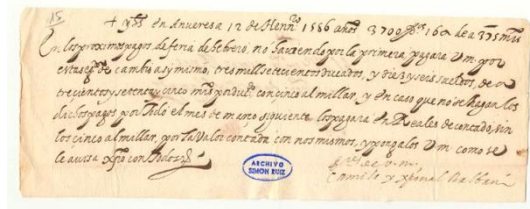 15
+ yhs en Anveresa 12 de Henro 1586 años 3700 16 de a 375 mrs
En los proximos pagos de feria de hebrero, no haviendo por la primera pagara V.m. por
esta seg. de cambio a si mismo, tres mill setecientos ducados, y diez y seis sueldos, de
trecientos y setenta y cinco mrs por du.o con cinco al millar, y en caso que no se hagan los
dichos pagos por todo el mes de março siguiente los pagara en Reales de contado, sin
los cinco al millar, por la valor contada con nos mismos, y pongalos V.m. como se
le avisa xpo con todos
ARCHIVO
SIMON RUIZ
Camilo y xpoval Balbani